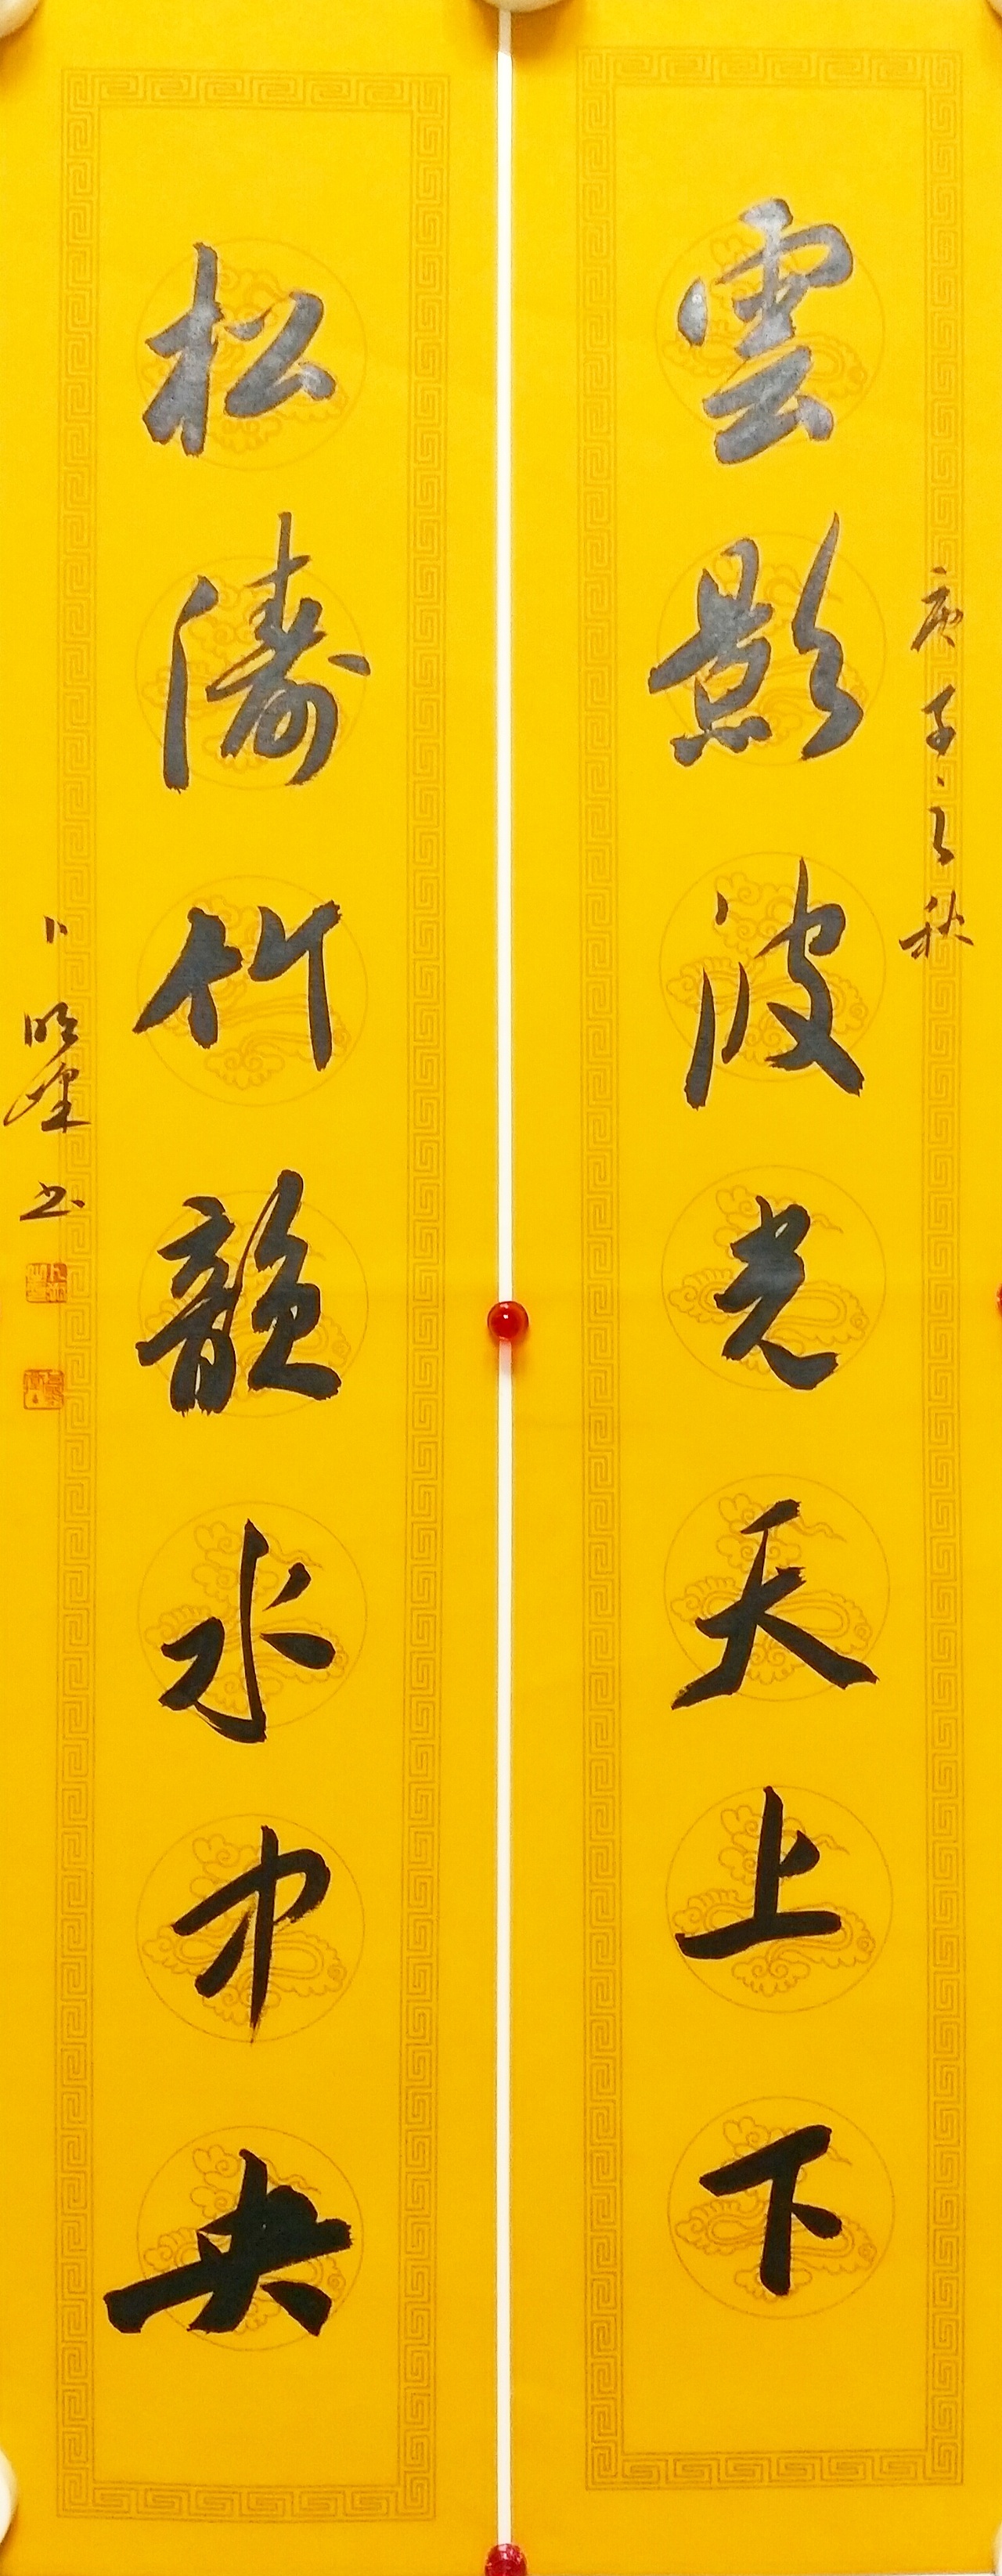 雲影波光天上下
庚子之秋
松濤竹韻水中央
卜明煌书